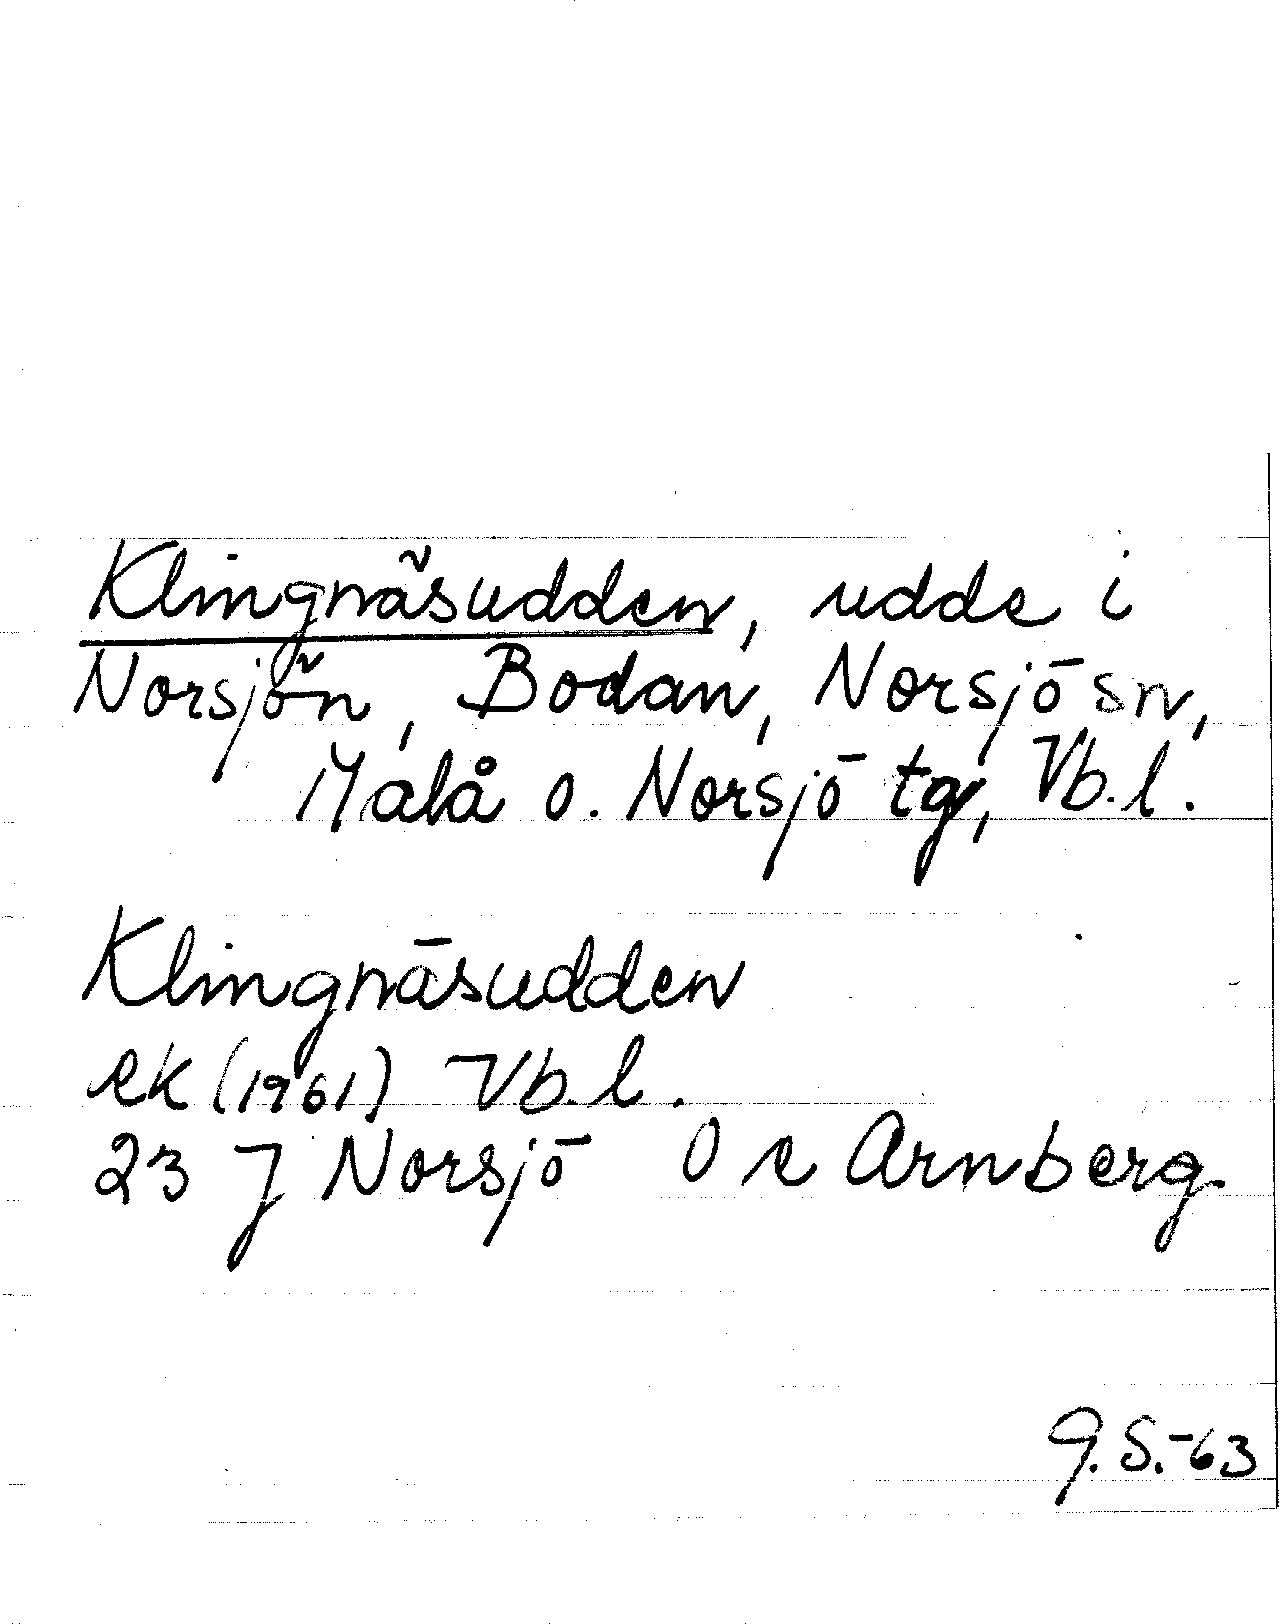 Klingnäsudden, udde i
Norsjön, Bodan, Norsjö sn,
Malå o. Norsjö tg, Vb.l.
Klingnäsudden
ek (1961) Vb.l.
23 J Norsjö O e Arnberg
G.S.-63